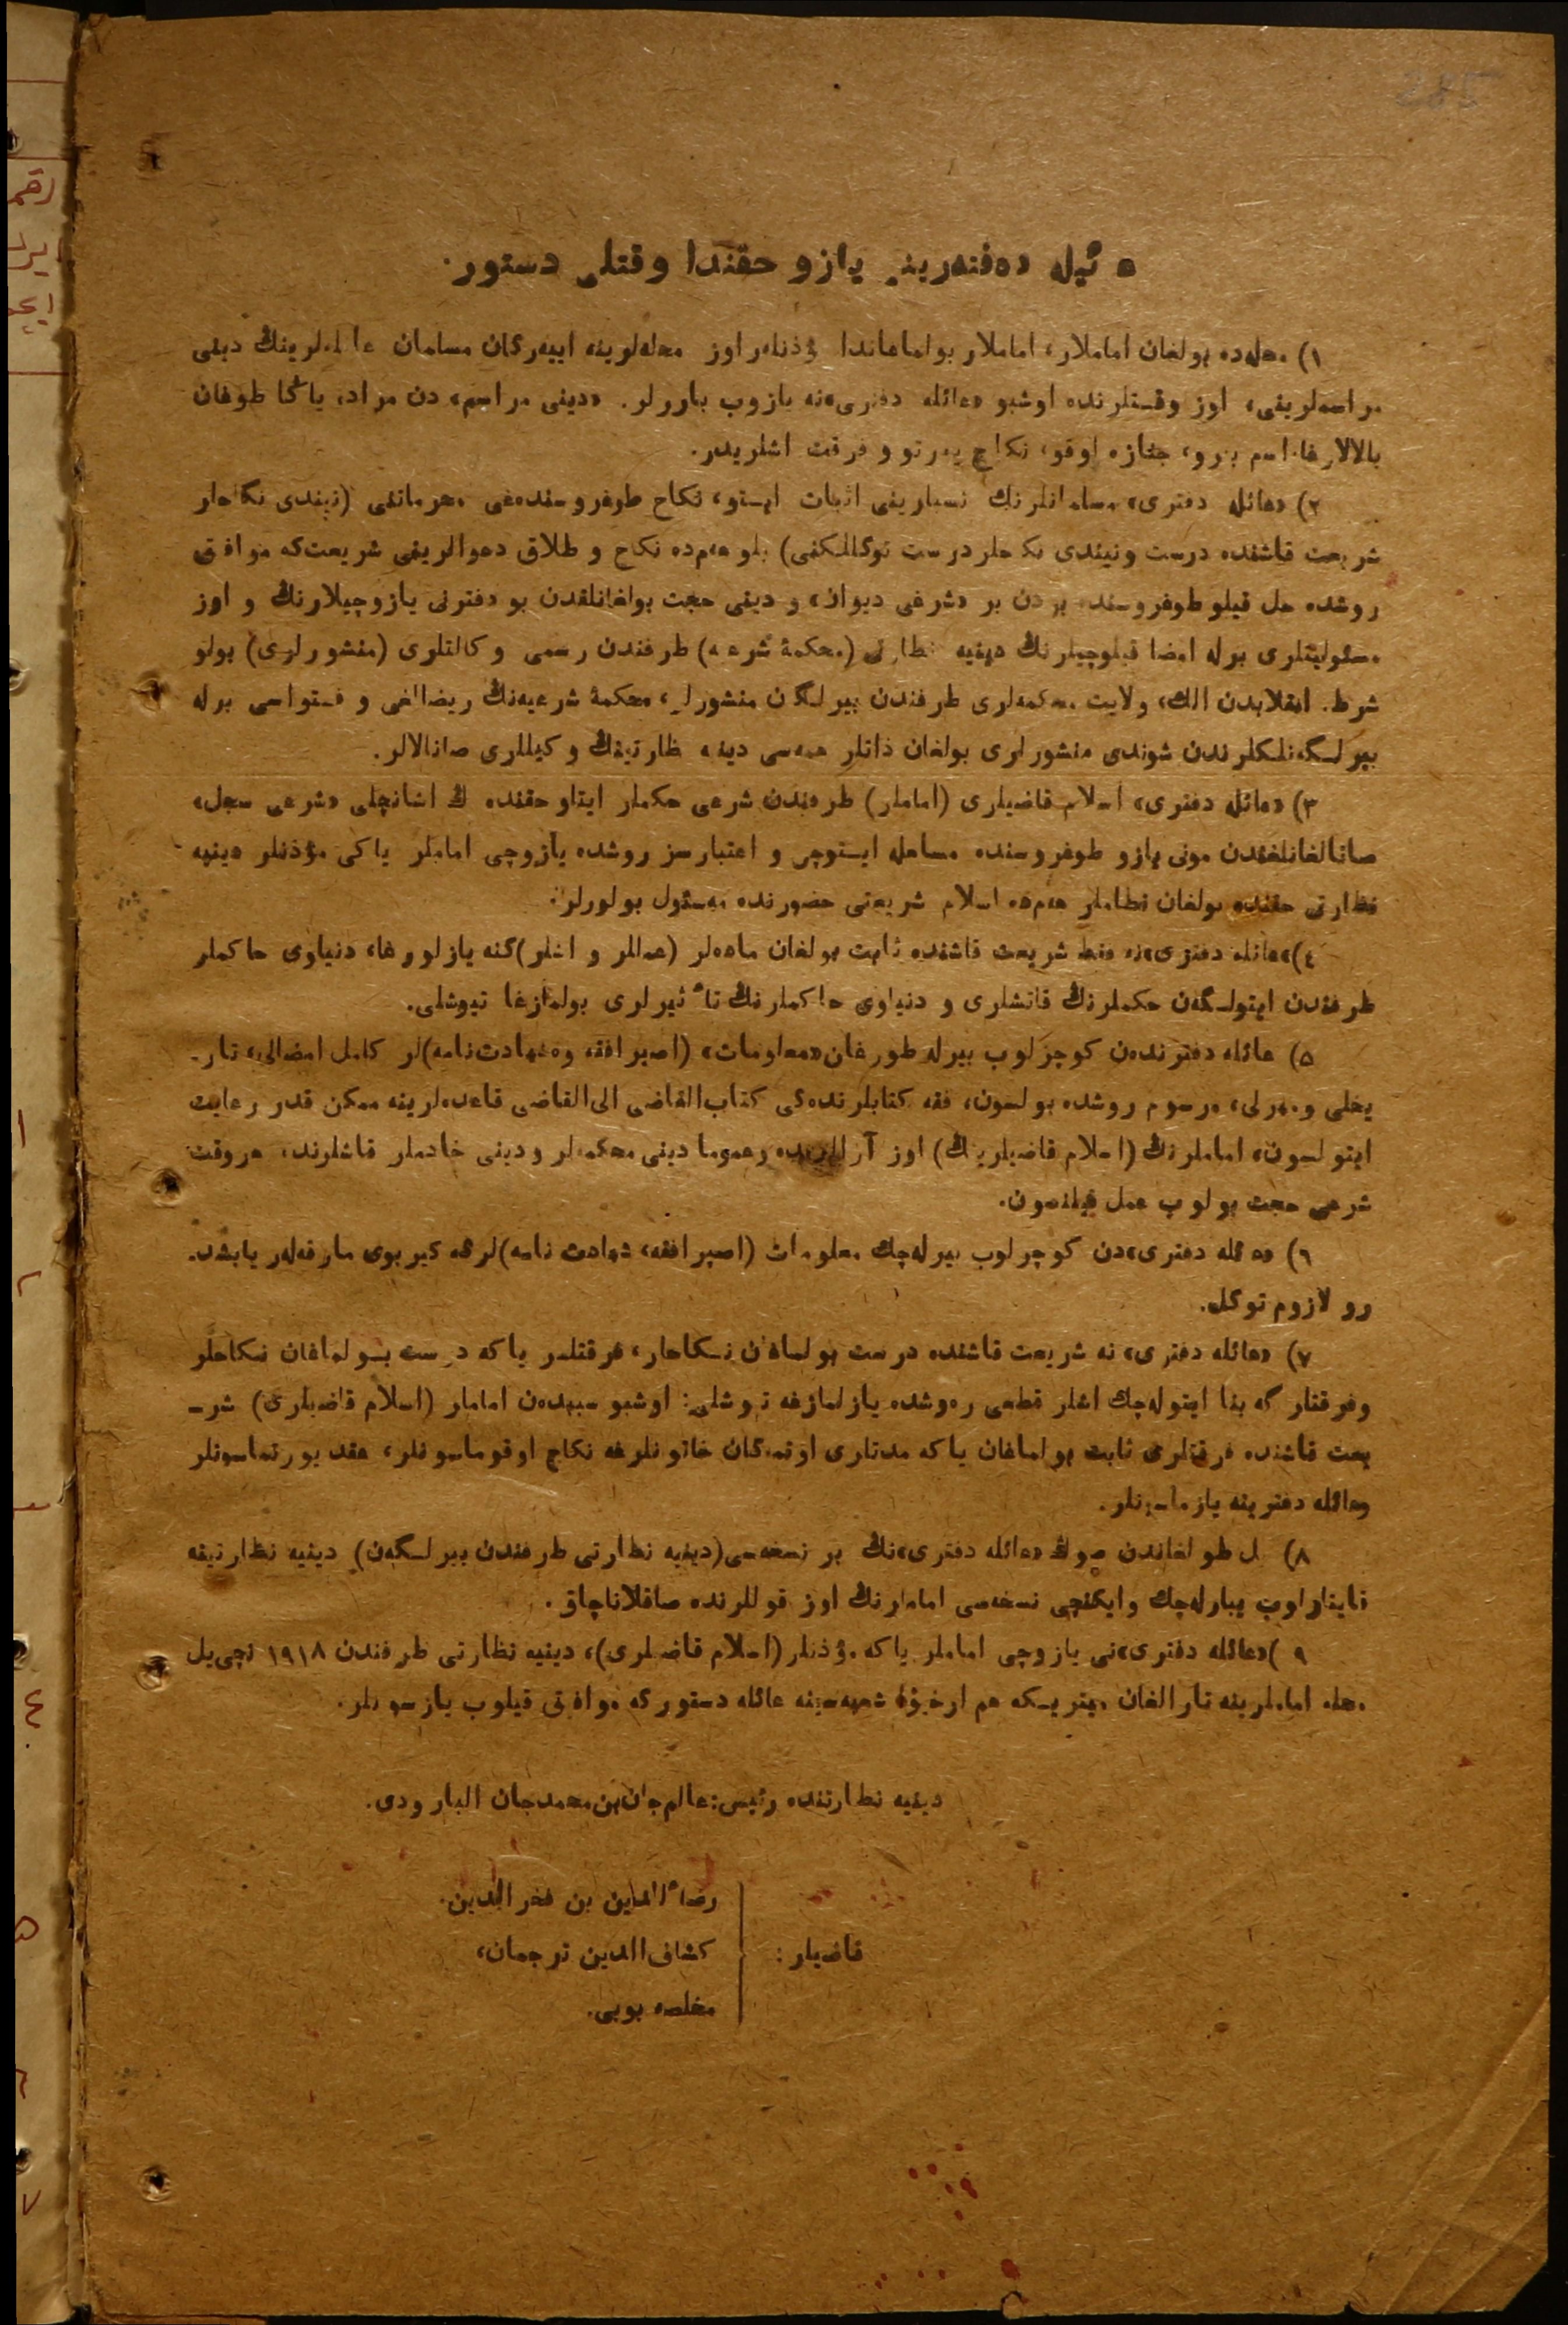 عائله دەفتەرینی یازو حقندا وقتلی دستور.
۱) محلەدە بولغان اماملار، اماملار بولماغاندا مؤذنلەر اوز محلەلرینە اییەرگان مسلمان عائلەلرینڭ دینی
مراسملرینی، اوز وقتلرندە اوشبو «عائله دفتری»نە یازوب باررلر. «دینی مراسم» دن مراد، یاڭا طوغان
بالالارغا اسم بیرو، جنازە اوقو، نکاح یورتو و فرقت اشلریدر.
۲) «عائله دفتری» مسلمانلرنڭ نسبلرینی اثبات ایستو، نکاح طوغروسندەغی محرماتنی (نیندی نکاحلر
شریعت قاشندە درست و نیندی نکاحلر درست توگللکنی) بلو هەم دە نکاح و طلاق دعوالرینی شریعت کە موافق
روشدە حل قیلو طوغروسندە بردن بر «شرعی دیوان» و دینی حجت بولغانلقدن بو دفترنی یازوچیلارنڭ و اوز
مسئولیتلری برلە امضا قیلوچیلرنڭ دینیە نظارتی (محکمۀ شرعیە) طرفندن رسمی وکالتلری (منشورلری) بولو
شرط. انقلابدن الك، ولایت محکمەلری طرفندن بیرلگان منشورلر، محکمۀ شرعیەنڭ ریضالغی و فتواسی برلە
بیرلگەنلکلرندن شوندی منشورلری بولغان ذاتلر همەسی دینیە نظارتینڭ وکیللری صانالالر.
۳) «عائله دفتری» اسلام قاضیلری (اماملر) طرفندن شرعی حکملر ایتلو حقندە ڭ اشانچلی «شرعی سجل»
صانالغانلغندن مونی یازو طوغروسندە مساهلە ایستوچی و اعتبارسز روشدە یازوچی اماملر یاکی مؤذنلر دینیە
نظارتی حقندە بولغان نظاملر هەم دە اسلام شریعتی حضورندە مسئول بولورلر.
٤) «عائله دفتری»نە فقط شریعت قاشندە ثابت بولغان مادەلر (عمللر و اشلر)گنە یازلورغا، دنیاوی حاکملر
طرفندن ایتولگەن حکملرنڭ قاتشلری و دنیاوی حاکملرنڭ تأثیرلری بولمازغا تیوشلی.
۵) عائله دفترندەن کوچرلوب بیرلە طورغان «معلومات» (اصپرافقە وەشهادت نامە)لر کامل امضالی، تار-
یخلی و مهرلی، مرسوم روشدە بولسون، فقە کتابلرندەگی کتاب القاضی الی القاضی قاعدەلرینە ممکن قدر رعایت
ایتولسون، اماملرنڭ (اسلام قاضیلرینڭ) اوز آرالارندە و عموما دینی محکمەلر و دینی خادملر قاشلرندە، هروقت
شرعی حجت بولوب عمل قیلنسون.
٦) «عائله دفتری»دن کوچرلوب بیرلەچك معلومات (اصپرافقە، شهادت نامە)لرغە کیربوی مارقەلەر یابشد-
رو لازوم توگل.
۷) «عائله دفتری» نە شریعت قاشندە درست بولماغان نکاحلر، فرقتلەر یاکە درست بولماغان نکاحلر
وفرقتلر گە بنا ایتولەچك اشلر قطعی رەوشدە یازلمازغە تیوشلی: اوشبو سببدەن اماملر (اسلام قاضیلری) شر-
یعت قاشندە فرقتلری ثابت بولماغان یاکە مدتلری اوتمەگان خاتونلرغە نکاح اوقوماسونلر، عقد یورتماسونلر
وعائله دفترینە یازماسونلر.
۸) یل طولغاندن صوڭ «عائله دفتری»نڭ بر نسخەسی (دینیە نظارتی طرفندن بیرلگەن) دینیە نظارتینە
قایتارلوب یبارلەچك و ایکنچی نسخەسی اماملرنڭ اوز قوللرندە صاقلاناچاق.
۹) «عائله دفتری»نی یازوچی اماملر یاکە مؤذنلر (اسلام قاضیلری)، دینیە نظارتی طرفندن ۱۹۱۸ نچی یل
محلە اماملرینە تارالغان میتریکە هم ارخیوڭ شعبەسینە عائلە دستورگە موافق قیلوب یازسونلر.
دینیە نظارتندە رئیس: عالم جان بن محمدجان البارودی.
قاضیلر:
رضاءالدین بن فخرالدین.
کشاف الدین ترجمان،
مخلصە بوبی.